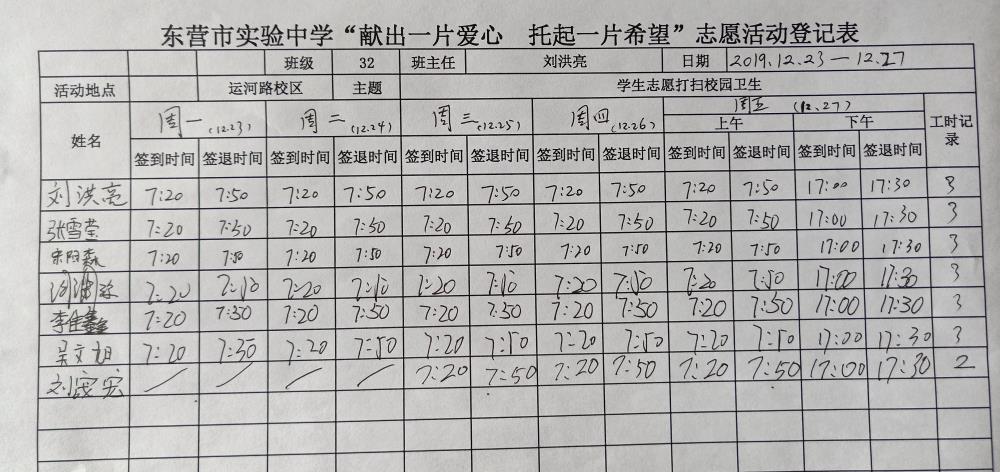 东营市实验中学“献出一片爱心 托起一片希望”志愿活动登记表
班级 32 班主任 刘洪亮 日期 2019.12.23—12.27
活动地点 运河路校区 主题 学生志愿打扫校园卫生
姓名 周一(12.23) 周二(12.24) 周三(12.25) 周四(12.26) 周五(12.27) 工时记录
上午 下午
签到时间 签退时间 签到时间 签退时间 签到时间 签退时间 签到时间 签退时间 签到时间 签退时间 签到时间 签退时间
刘洪亮 7:20 7:50 7:20 7:50 7:20 7:50 7:20 7:50 7:20 7:50 17:00 17:30 3
张雪莹 7:20 7:50 7:20 7:50 7:20 7:50 7:20 7:50 7:20 7:50 17:00 17:30 3
7:20 7:50 7:20 7:50 7:20 7:50 7:20 7:50 7:20 7:50 17:00 17:30 3
7:20 7:50 7:20 7:50 7:20 7:50 7:20 7:50 7:20 7:50 17:00 17:30 3
李佳鑫 7:20 7:50 7:20 7:50 7:20 7:50 7:20 7:50 7:20 7:50 17:00 17:30 3
吴文旭 7:20 7:50 7:20 7:50 7:20 7:50 7:20 7:50 7:20 7:50 17:00 17:30 3
刘 宏 7:20 7:50 7:20 7:50 7:20 7:50 17:00 17:30 2